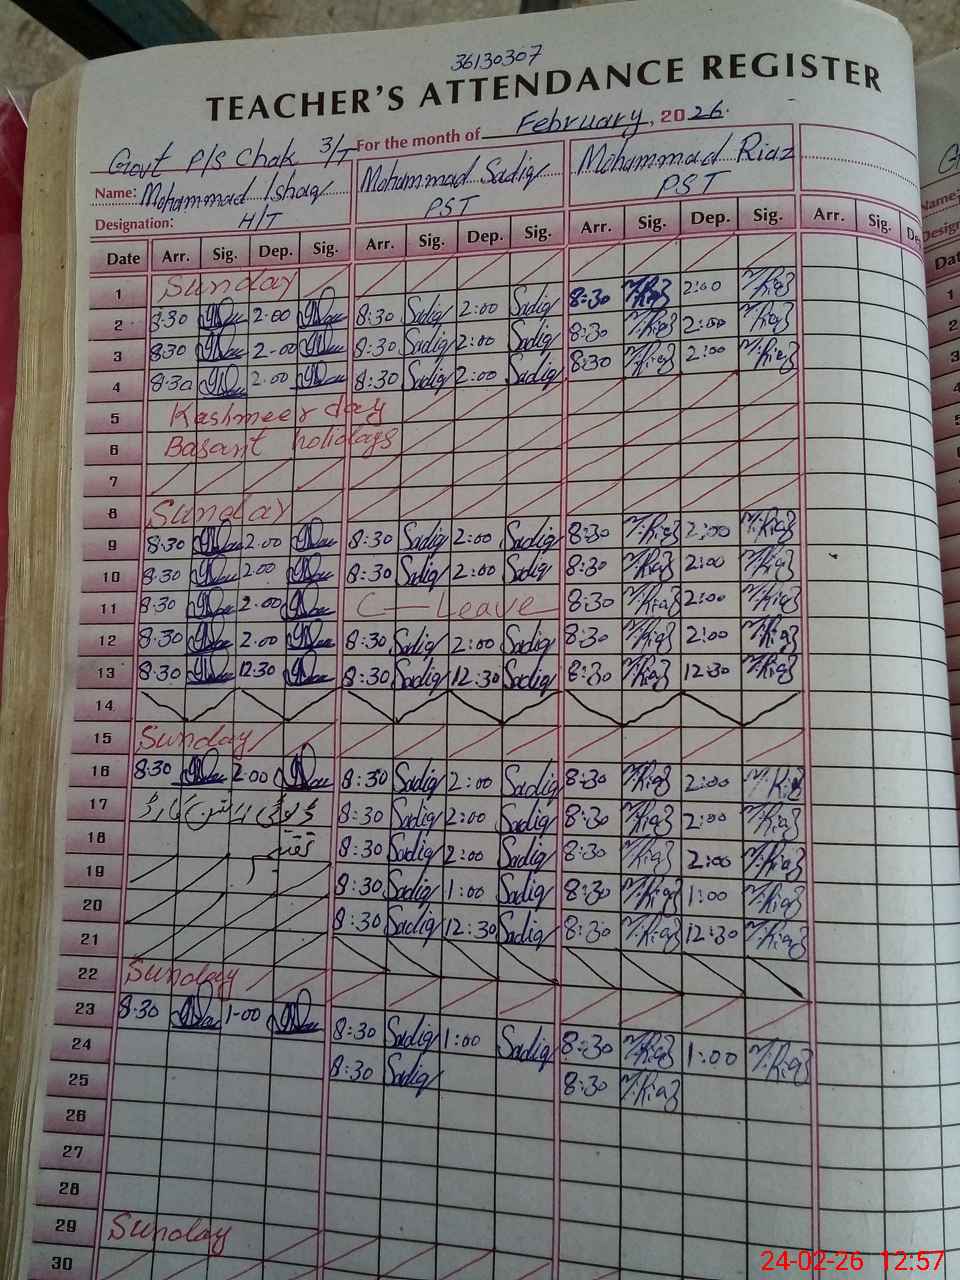 36130307
TEACHER'S ATTENDANCE REGISTER
For the month of February, 2026.
Govt P/S Chak 3/T
Name: Mohammad Ishaq Mohammad Sadiq Mohammad Riaz
Designation: H/T PST PST
Date Arr. Sig. Dep. Sig. Arr. Sig. Dep. Sig. Arr. Sig. Dep. Sig. Arr. Sig.
1 Sunday
2 8:30 2:00 8:30 Sadiq 2:00 Sadiq 8:30 M.Riaz 2:00 M.Riaz
3 8:30 2-00 8:30 Sadiq 2:00 Sadiq 8:30 M.Riaz 2:00 M.Riaz
4 8:30 2:00 8:30 Sadiq 2:00 Sadiq 8:30 M.Riaz 2:00 M.Riaz
5 Kashmeer day
6 Basant holidays
7
8 Sunday
9 8:30 2:00 8:30 Sadiq 2:00 Sadiq 8:30 M.Riaz 2:00 M.Riaz
10 8:30 2:00 8:30 Sadiq 2:00 Sadiq 8:30 M.Riaz 2:00 M.Riaz
11 8:30 2:00 C—Leave 8:30 M.Riaz 2:00 M.Riaz
12 8:30 2:00 8:30 Sadiq 2:00 Sadiq 8:30 M.Riaz 2:00 M.Riaz
13 8:30 12:30 8:30 Sadiq 12:30 Sadiq 8:30 M.Riaz 12:30 M.Riaz
14
15 Sunday
16 8:30 2:00 8:30 Sadiq 2:00 Sadiq 8:30 M.Riaz 2:00 M.Riaz
17 8:30 Sadiq 2:00 Sadiq 8:30 M.Riaz 2:00 M.Riaz
18 8:30 Sadiq 2:00 Sadiq 8:30 M.Riaz 2:00 M.Riaz
19 8:30 Sadiq 1:00 Sadiq 8:30 M.Riaz 1:00 M.Riaz
20 8:30 Sadiq 12:30 Sadiq 8:30 M.Riaz 12:30 M.Riaz
21
22 Sunday
23 8:30 1-00 8:30 Sadiq 1:00 Sadiq 8:30 M.Riaz 1:00 M.Riaz
24 8:30 Sadiq 8:30 M.Riaz
25
26
27
28
29 Sunday
30
24-02-26 12:57